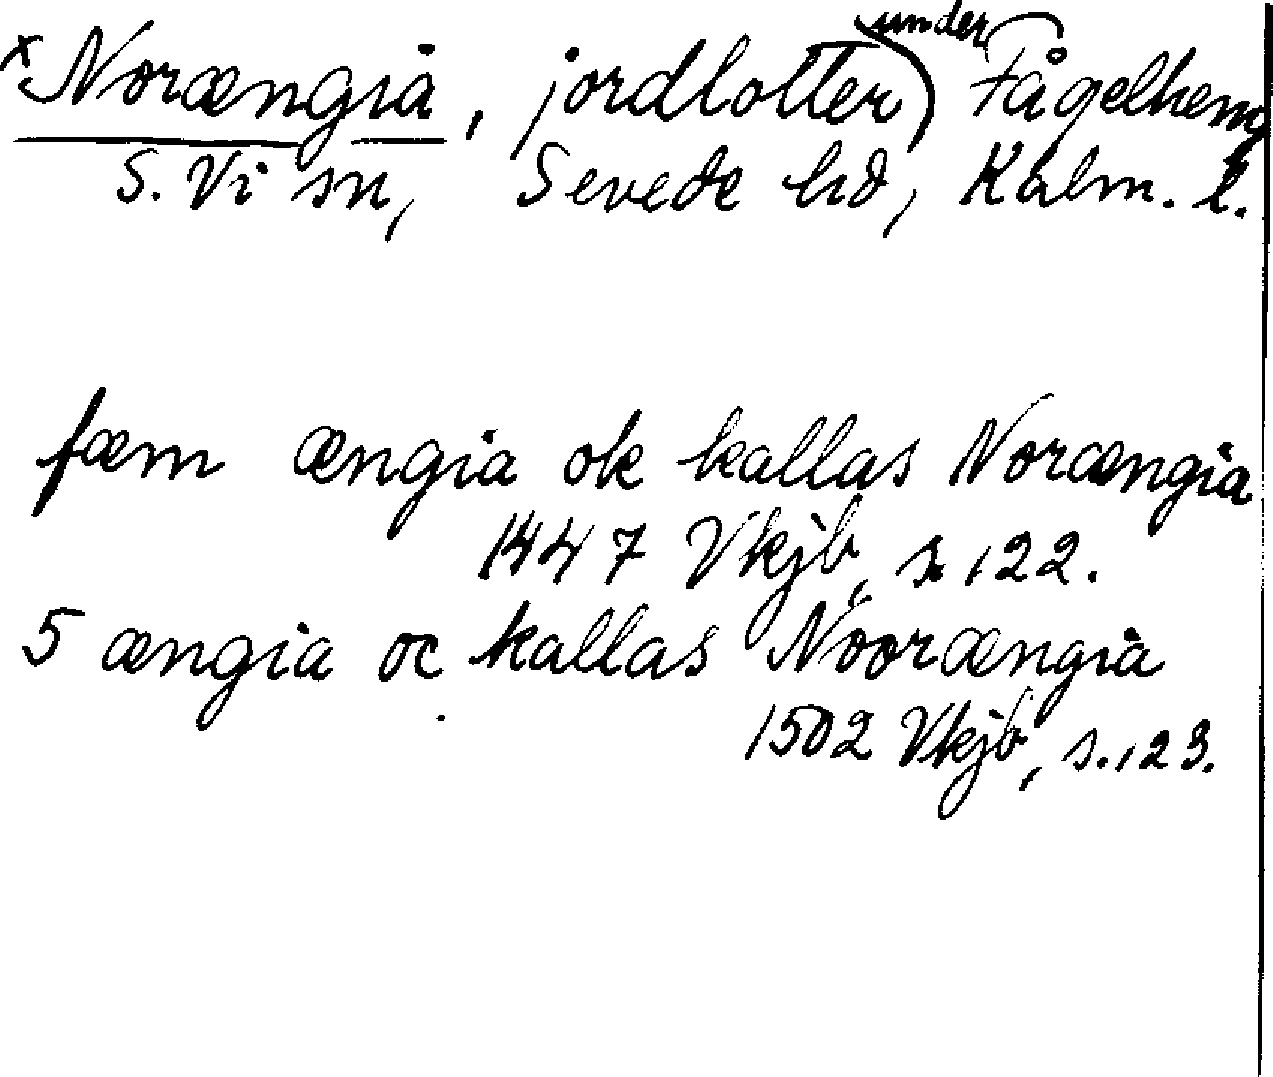 x Norængia, jordlotter under Fågelhem
S. Vi sn, Sevede hd, Kalm. l.
fæm ængia ok kallas Norængia
1447 Vkjb, s. 122.
5 ængia oc kallas Noorængia
1502 Vkjb, s. 123.